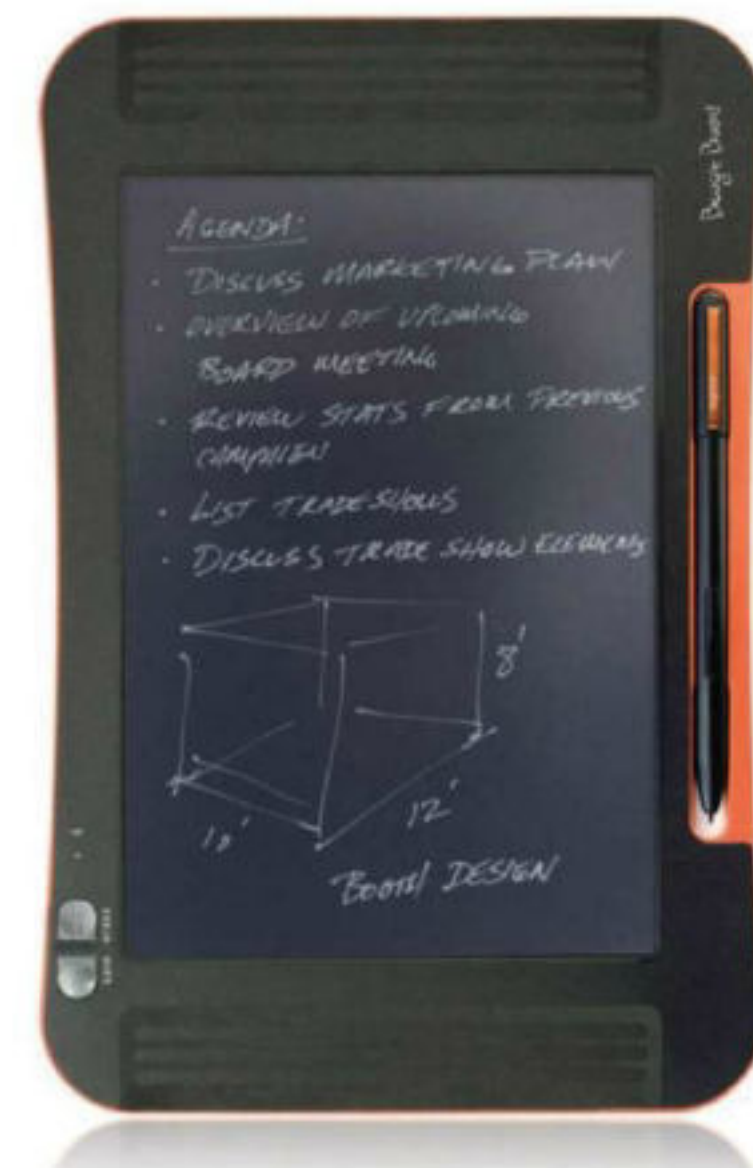 Boogie Board
AGENDA:
• DISCUSS MARKETING PLAN
• OVERVIEW OF UPCOMING
BOARD MEETING
• REVIEW STATS FROM PREVIOUS
CAMPAIGN
• LIST TRADESHOWS
• DISCUSS TRADE SHOW ELEMENTS
8'
12'
10'
BOOTH DESIGN